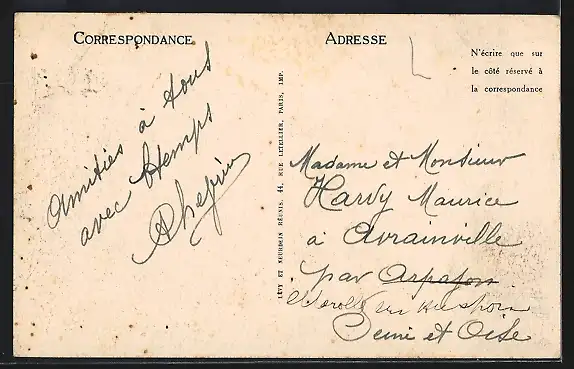 CORRESPONDANCE
Amities à tous
avec
ADRESSE
N'écrire que sur
le côté réservé à
la correspondance
LÉVY ET NEURDEIN RÉUNIS, 44, RUE LETELLIER, PARIS, IMP.
Madame et Monsieur
Hardy Maurice
à Avrainville
par Arpajon
Seine et Oise